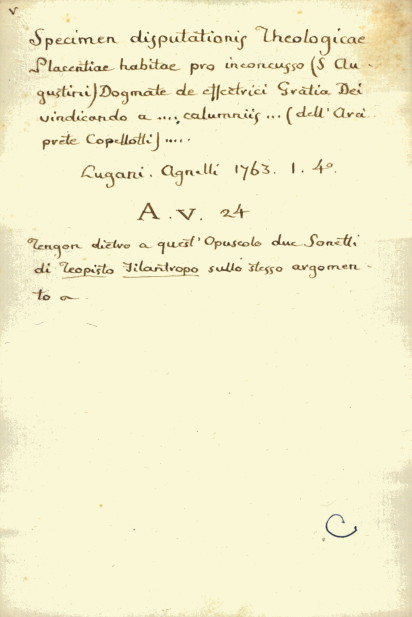 v
Specimen disputationis Theologicae
Placentiae habitae pro inconcusso (S Au-
gustini) Dogmate de effectrici Gratia Dei
vindicando a .... calumniis ... (dell' Arci
prete Copellotti) .....
Lugani. Agnelli 1763. 1. 4º.
A. V. 24
Tengon dietro a quest' Opuscolo due Sonetti
di Teopisto Filantropo sullo stesso argomen-
to
C